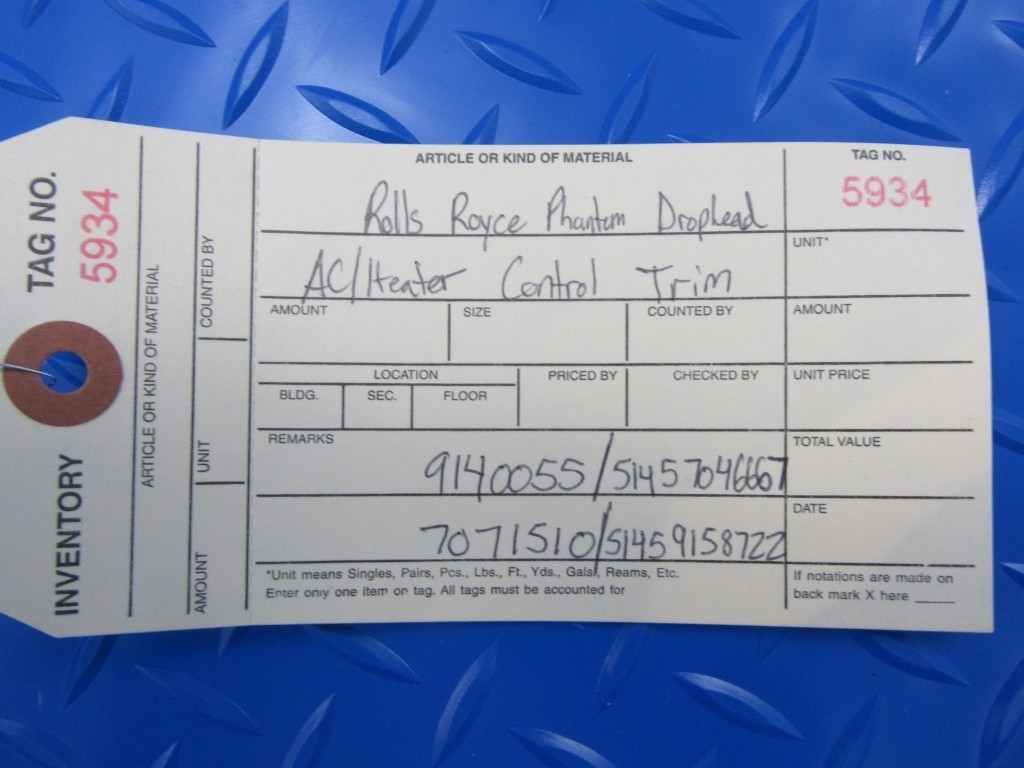 TAG NO.
5934
INVENTORY
ARTICLE OR KIND OF MATERIAL
COUNTED BY
UNIT
AMOUNT
ARTICLE OR KIND OF MATERIAL
TAG NO.
5934
Rolls Royce Phantom Drophead
UNIT*
AC/Heater Control Trim
AMOUNT SIZE COUNTED BY AMOUNT
LOCATION PRICED BY CHECKED BY UNIT PRICE
BLDG. SEC. FLOOR
REMARKS TOTAL VALUE
9140055/51457046667
DATE
7071510/51459158722
*Unit means Singles, Pairs, Pcs., Lbs., Ft., Yds., Gals., Reams, Etc.
Enter only one item on tag. All tags must be accounted for
If notations are made on
back mark X here _____